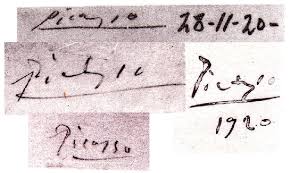 Picasso 28-11-20-
Picasso
Picasso
1920
Picasso